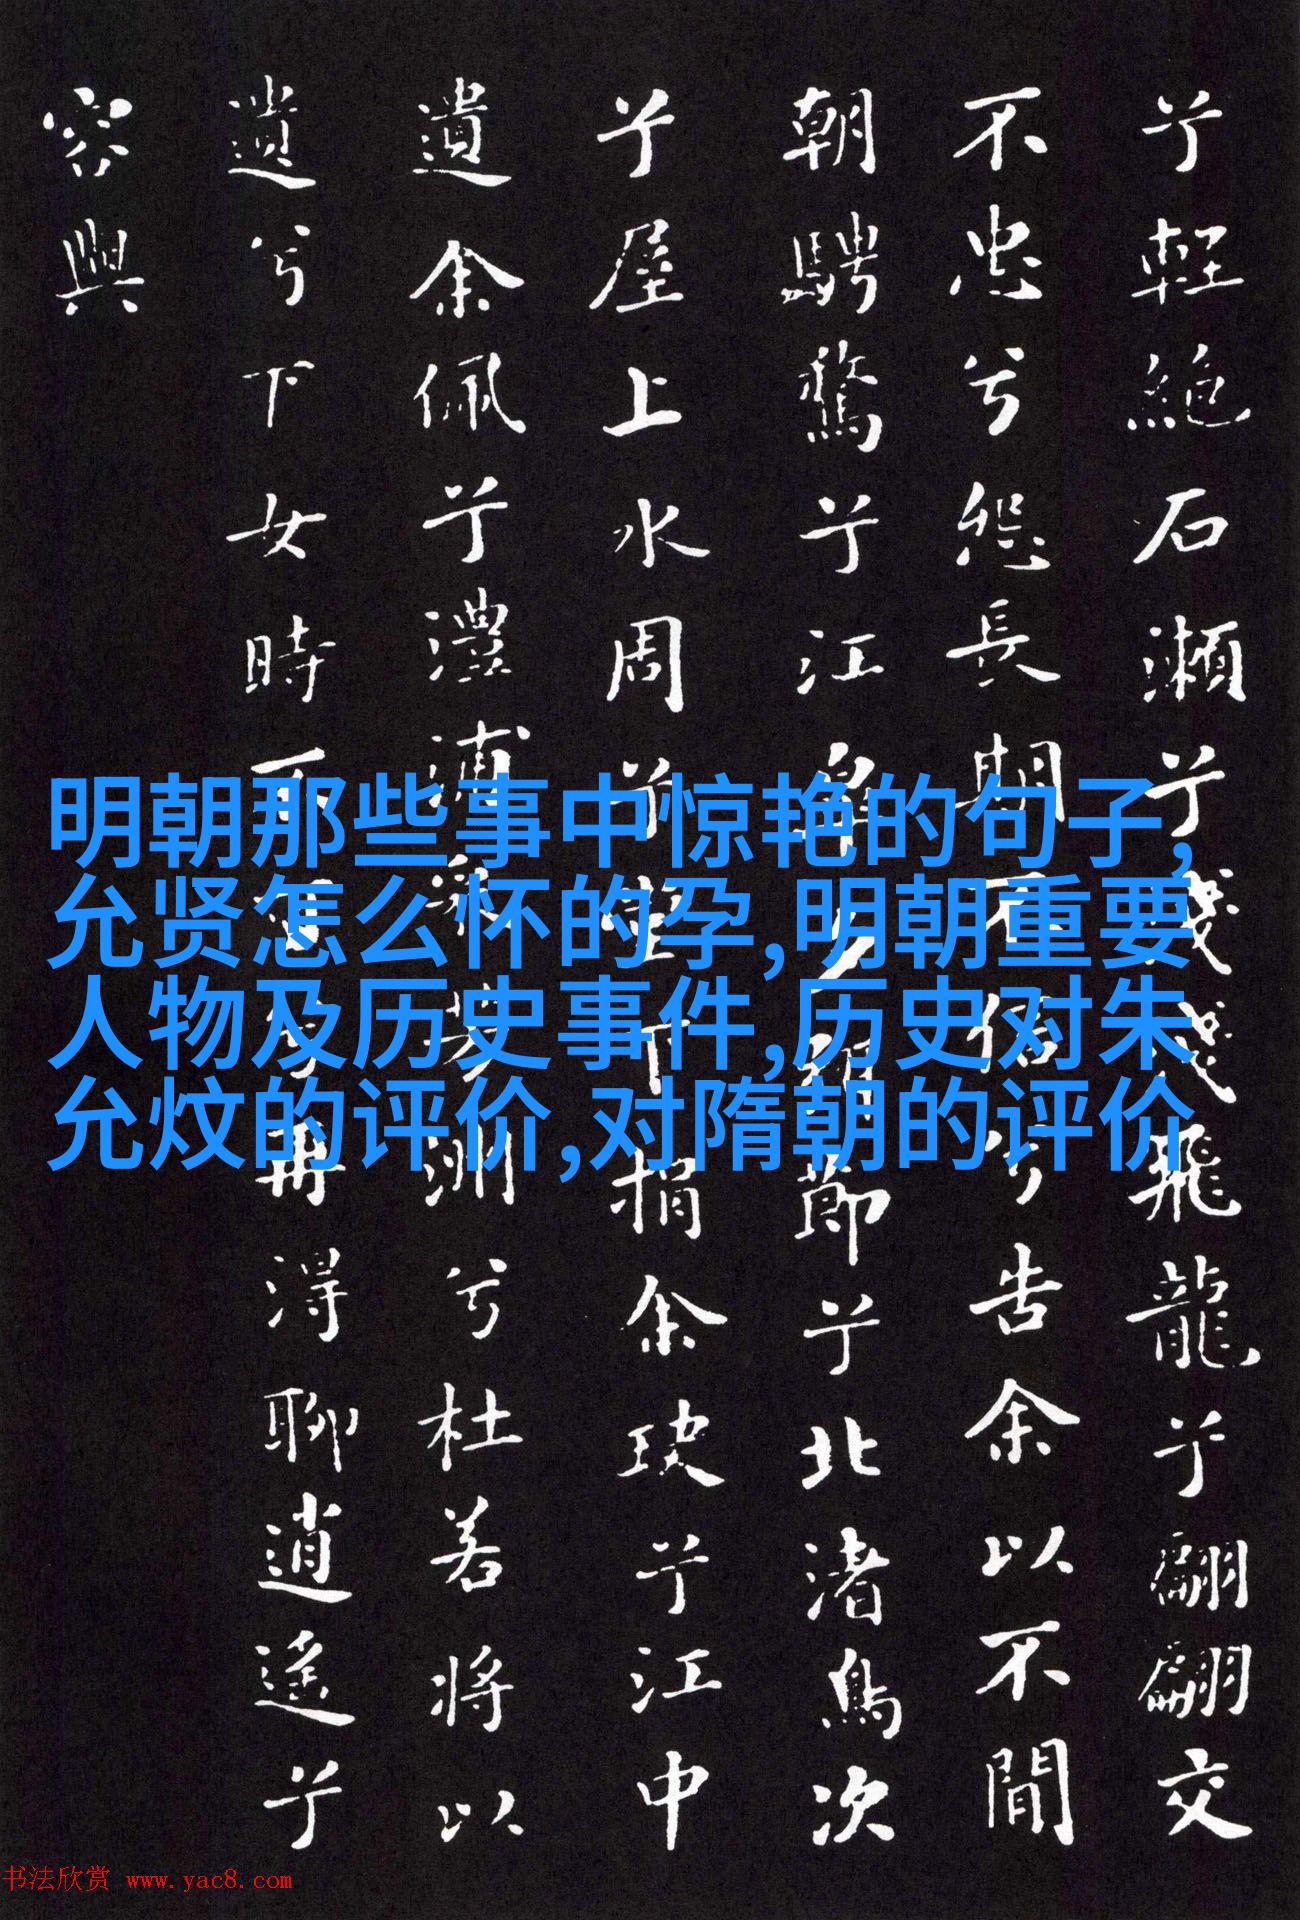 兮輕絕石瀨兮淺淺飛龍兮翩翩交
不忠兮怨長期不信兮告余以不閒
朝騁騖兮江皋夕弭節兮北渚鳥次
兮屋上水周兮堂下捐余玦兮江中
遺余佩兮澧浦采芳洲兮杜若將以
遺兮下女時不可兮再得聊逍遙兮
容與
明朝那些事中惊艳的句子,
允贤怎么怀的孕,明朝重要
人物及历史事件,历史对朱
允炆的评价,对隋朝的评价
书法欣赏 www.yac8.com